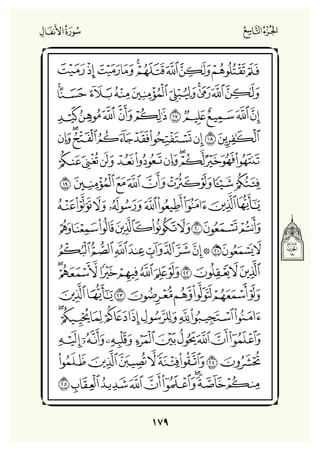 الجُزْءُ التَّاسِعُ
سُورَةُ الأَنفَال
فَلَمْ تَقْتُلُوهُمْ وَلَٰكِنَّ ٱللَّهَ قَتَلَهُمْ ۚ وَمَا رَمَيْتَ إِذْ رَمَيْتَ
وَلَٰكِنَّ ٱللَّهَ رَمَىٰ ۚ وَلِيُبْلِىَ ٱلْمُؤْمِنِينَ مِنْهُ بَلَآءً حَسَنًا ۚ
إِنَّ ٱللَّهَ سَمِيعٌ عَلِيمٌ ١٧ ذَٰلِكُمْ وَأَنَّ ٱللَّهَ مُوهِنُ كَيْدِ
ٱلْكَٰفِرِينَ ١٨ إِن تَسْتَفْتِحُوا۟ فَقَدْ جَآءَكُمُ ٱلْفَتْحُ ۖ وَإِن
تَنتَهُوا۟ فَهُوَ خَيْرٌ لَّكُمْ ۖ وَإِن تَعُودُوا۟ نَعُدْ وَلَن تُغْنِىَ عَنكُمْ
فِئَتُكُمْ شَيْـًٔا وَلَوْ كَثُرَتْ وَأَنَّ ٱللَّهَ مَعَ ٱلْمُؤْمِنِينَ ١٩
يَٰٓأَيُّهَا ٱلَّذِينَ ءَامَنُوٓا۟ أَطِيعُوا۟ ٱللَّهَ وَرَسُولَهُۥ وَلَا تَوَلَّوْا۟ عَنْهُ
وَأَنتُمْ تَسْمَعُونَ ٢٠ وَلَا تَكُونُوا۟ كَٱلَّذِينَ قَالُوا۟ سَمِعْنَا وَهُمْ
لَا يَسْمَعُونَ ٢١ ۞ إِنَّ شَرَّ ٱلدَّوَآبِّ عِندَ ٱللَّهِ ٱلصُّمُّ ٱلْبُكْمُ
ٱلَّذِينَ لَا يَعْقِلُونَ ٢٢ وَلَوْ عَلِمَ ٱللَّهُ فِيهِمْ خَيْرًا لَّأَسْمَعَهُمْ ۖ
وَلَوْ أَسْمَعَهُمْ لَتَوَلَّوا۟ وَّهُم مُّعْرِضُونَ ٢٣ يَٰٓأَيُّهَا ٱلَّذِينَ
ءَامَنُوا۟ ٱسْتَجِيبُوا۟ لِلَّهِ وَلِلرَّسُولِ إِذَا دَعَاكُمْ لِمَا يُحْيِيكُمْ ۖ
وَٱعْلَمُوٓا۟ أَنَّ ٱللَّهَ يَحُولُ بَيْنَ ٱلْمَرْءِ وَقَلْبِهِۦ وَأَنَّهُۥٓ إِلَيْهِ
تُحْشَرُونَ ٢٤ وَٱتَّقُوا۟ فِتْنَةً لَّا تُصِيبَنَّ ٱلَّذِينَ ظَلَمُوا۟
مِنكُمْ خَآصَّةً ۖ وَٱعْلَمُوٓا۟ أَنَّ ٱللَّهَ شَدِيدُ ٱلْعِقَابِ ٢٥
١٧٩